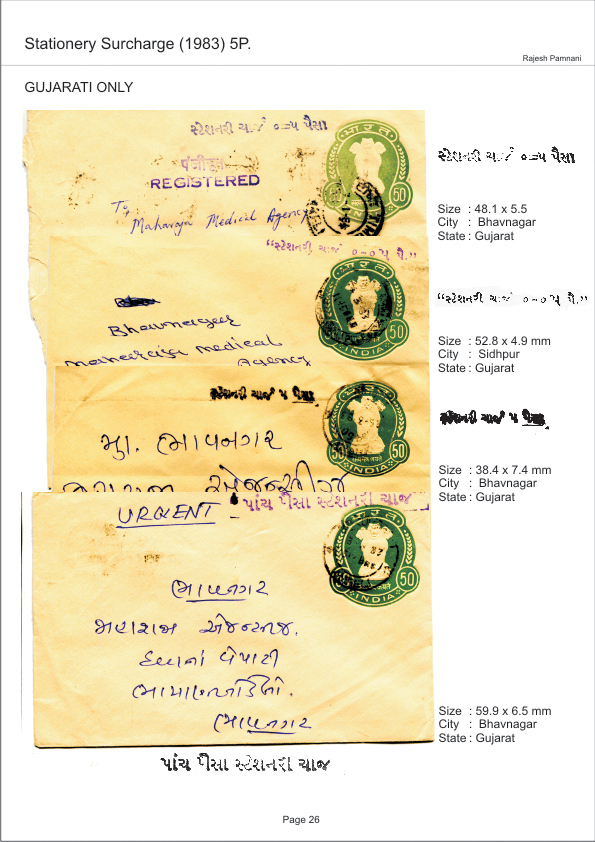 Stationery Surcharge (1983) 5P.
Rajesh Pamnani
GUJARATI ONLY
સ્ટેશનરી ચાર્જ ૦=૫ પૈસા
ભારત
50
पंजीकृत
REGISTERED
To,
Maharaja Medical Agency
સ્ટેશનરી ચાર્જ ૦=૫ પૈસા
Size : 48.1 x 5.5
City : Bhavnagar
State : Gujarat
"સ્ટેશનરી ચાર્જ ૦-૦૫ પૈ."
भारत
50 50
INDIA
Bhavnagar
Maharaja medical
Agency
"સ્ટેશનરી ચાર્જ ૦-૦૫ પૈ."
Size : 52.8 x 4.9 mm
City : Sidhpur
State : Gujarat
સ્ટેશનરી ચાર્જ ૫ પૈસા
50 50
INDIA
મુ. ભાવનગર
સ્ટેશનરી ચાર્જ ૫ પૈસા
Size : 38.4 x 7.4 mm
City : Bhavnagar
State : Gujarat
પાંચ પૈસા સ્ટેશનરી ચાર્જ
URGENT
भारत
50
INDIA
ભાવનગર
ભાવનગર
Size : 59.9 x 6.5 mm
City : Bhavnagar
State : Gujarat
પાંચ પૈસા સ્ટેશનરી ચાર્જ
Page 26